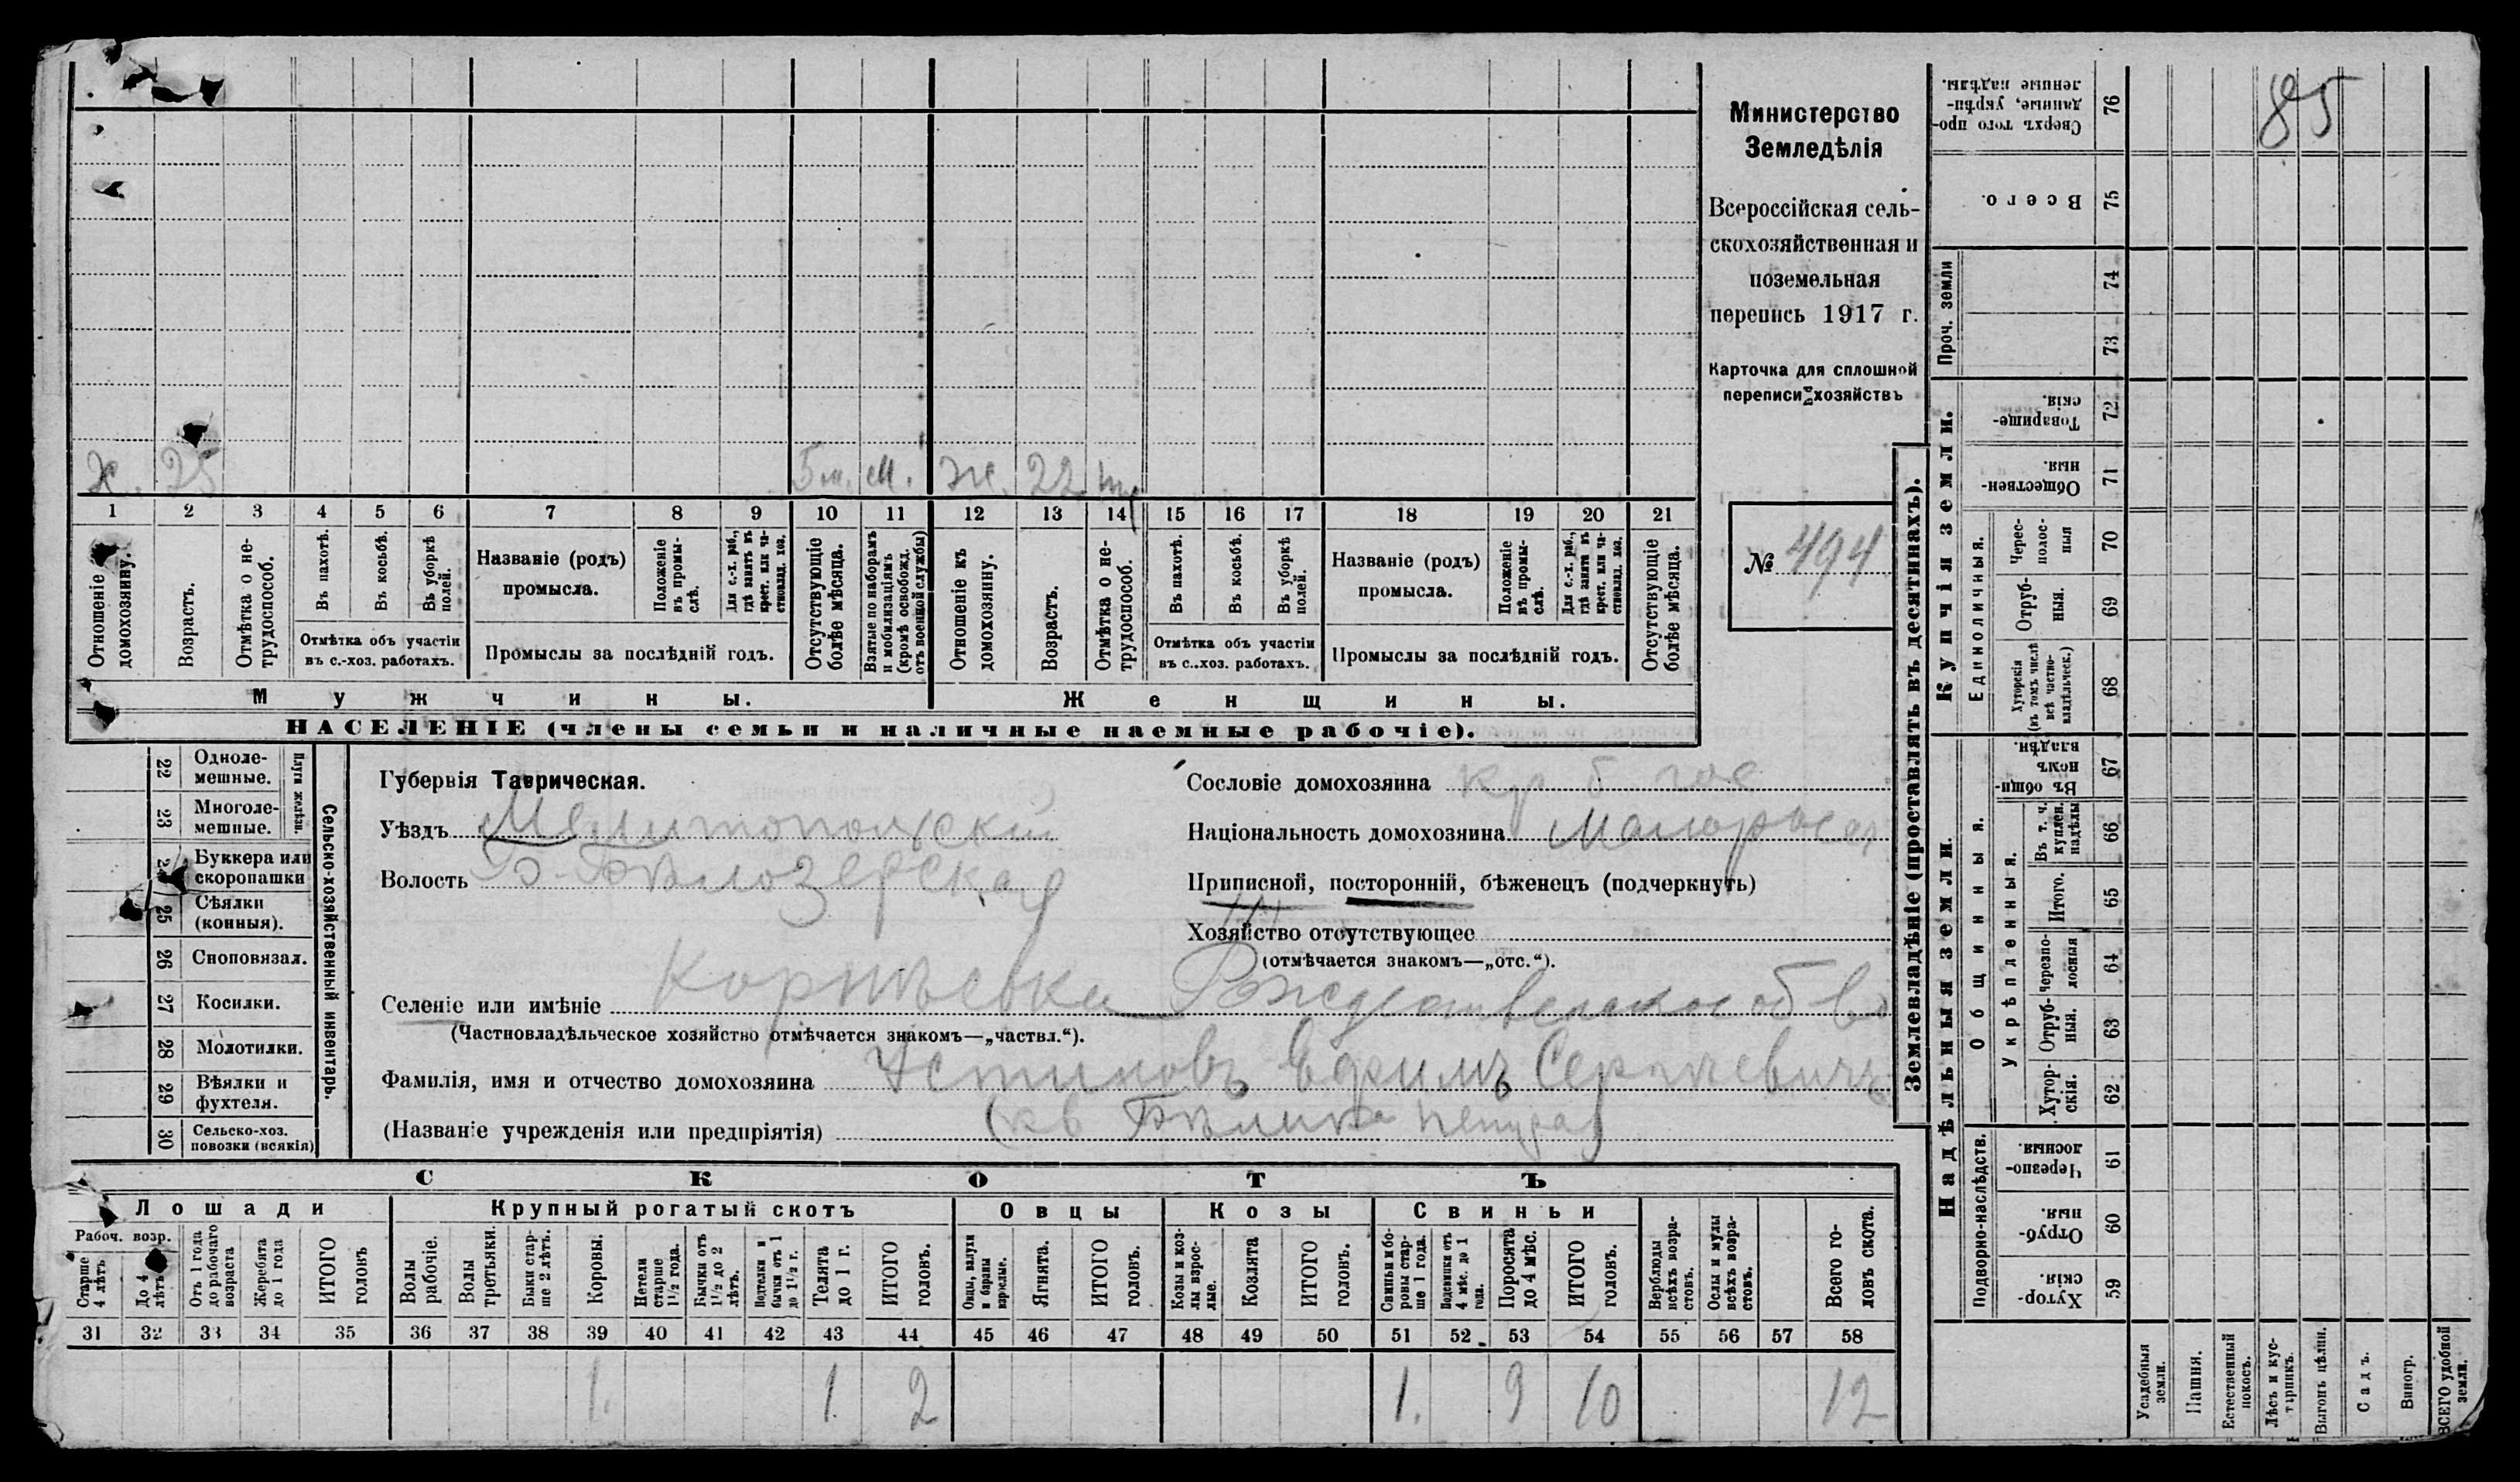 Х. 25 5 м. М. Ж. 22
1 2 3 4 5 6 7 8 9 10 11 12 13 14 15 16 17 18 19 20 21
Отношеніе къ домохозяину.
Возрастъ.
Отмѣтка о не-
трудоспособ.
Въ пахотѣ.
Въ косьбѣ.
Въ уборкѣ
полей.
Отмѣтка объ участіи
въ с.-хоз. работахъ.
Названіе (родъ)
промысла.
Положеніе
въ промы-
слѣ.
Для с.-х. раб.,
гдѣ занятъ въ
крест. или ча-
стновлад. хоз.
Промыслы за послѣдній годъ.
Отсутствующіе
болѣе мѣсяца.
Взятые по наборамъ
и мобилизаціямъ
(кромѣ освобожд.
отъ военной службы)
Отношеніе къ
домохозяину.
Возрастъ.
Отмѣтка о не-
трудоспособ.
Въ пахотѣ.
Въ косьбѣ.
Въ уборкѣ
полей.
Отмѣтка объ участіи
въ с.-хоз. работахъ.
Названіе (родъ)
промысла.
Положеніе
въ промы-
слѣ.
Для с.-х. раб.,
гдѣ занята въ
крест. или ча-
стновлад. хоз.
Промыслы за послѣдній годъ.
Отсутствующіе
болѣе мѣсяца.
Мужчины. Женщины.
НАСЕЛЕНІЕ (члены семьи и наличные наемные рабочіе).
Министерство
Земледѣлія
Всероссійская сель-
скохозяйственная и
поземельная
перепись 1917 г.
Карточка для сплошной
переписи хозяйствъ
№ 494
22 Одноле-
мешные.
23 Многоле-
мешные.
Плуги желѣзн.
24 Буккера или
скоропашки
25 Сѣялки
(конныя).
26 Сноповязал.
27 Косилки.
28 Молотилки.
29 Вѣялки и
фухтеля.
30 Сельско-хоз.
повозки (всякія)
Сельско-хозяйственный инвентарь.
Губернія Таврическая.
Уѣздъ Мелитопольскій
Волость Б.-Бѣлозерская
Сословіе домохозяина кр б. гос
Національность домохозяина Малоросс
Приписной, посторонній, бѣженецъ (подчеркнуть)
Хозяйство отсутствующее
(отмѣчается знакомъ—„отс.“).
Селеніе или имѣніе Корнѣевка Рождественское об во
(Частновладѣльческое хозяйство отмѣчается знакомъ—„частвл.“).
Фамилія, имя и отчество домохозяина Устиновъ Ефимъ Сергѣевичъ
(Названіе учрежденія или предпріятія) (кв Бѣлика Петра)
СКОТЪ
Лошади Крупный рогатый скотъ Овцы Козы Свиньи
Рабоч. возр.
Старше
4 лѣтъ
До 4
лѣтъ
Отъ 1 года
до рабочаго
возраста
Жеребята
до 1 года
ИТОГО
головъ
Волы
рабочіе.
Волы
третьяки.
Быки стар-
ше 2 лѣтъ.
Коровы.
Нетели
старше
1½ года.
Бычки отъ
1½ до 2
лѣтъ.
Подтелки и
бычки отъ 1
до 1½ г.
Телята
до 1 г.
ИТОГО
головъ.
Овцы, валухи
и бараны
взрослые.
Ягнята.
ИТОГО
головъ.
Козы и коз-
лы взрос-
лые.
Козлята
ИТОГО
головъ.
Свиньи и бо-
ровы стар-
ше 1 года.
Подсвинки отъ
4 мѣс. до 1
года.
Поросята
до 4 мѣс.
ИТОГО
головъ.
Верблюды
всѣхъ возра-
стовъ.
Ослы и мулы
всѣхъ возра-
стовъ.
Всего го-
ловъ скота.
31 32 33 34 35 36 37 38 39 40 41 42 43 44 45 46 47 48 49 50 51 52 53 54 55 56 57 58
1. 1 2 1. 9 10 12
Землевладѣніе (проставлять въ десятинахъ).
Купчія земли.
Надѣльныя земли.
Проч. земли
Единоличныя.
Общинныя.
Укрѣпленныя.
Подворно-наслѣдств.
Сверхъ того про-
данные, укрѣп-
ленные надѣлы. 76
Всего. 75
74
73
Товарище-
скія. 72
Обществен-
ныя. 71
Черес-
полос-
ныя 70
Отруб-
ныя. 69
Хуторскія
(въ томъ числѣ
всѣ частно-
владѣльческ.) 68
Въ общи-
номъ
владѣн. 67
Въ т. ч.
куплен.
надѣлы 66
Итого. 65
Черезпо-
лосныя 64
Отруб-
ныя. 63
Хутор-
скія. 62
Черезпо-
лосныя 61
Отруб-
ныя. 60
Хутор-
скія. 59
Усадебныя
земли.
Пашня.
Естественный
покосъ.
Лѣсъ и кус-
тарникъ.
Выгонъ цѣлин.
Садъ.
Виногр.
ВСЕГО удобной
земли.
85